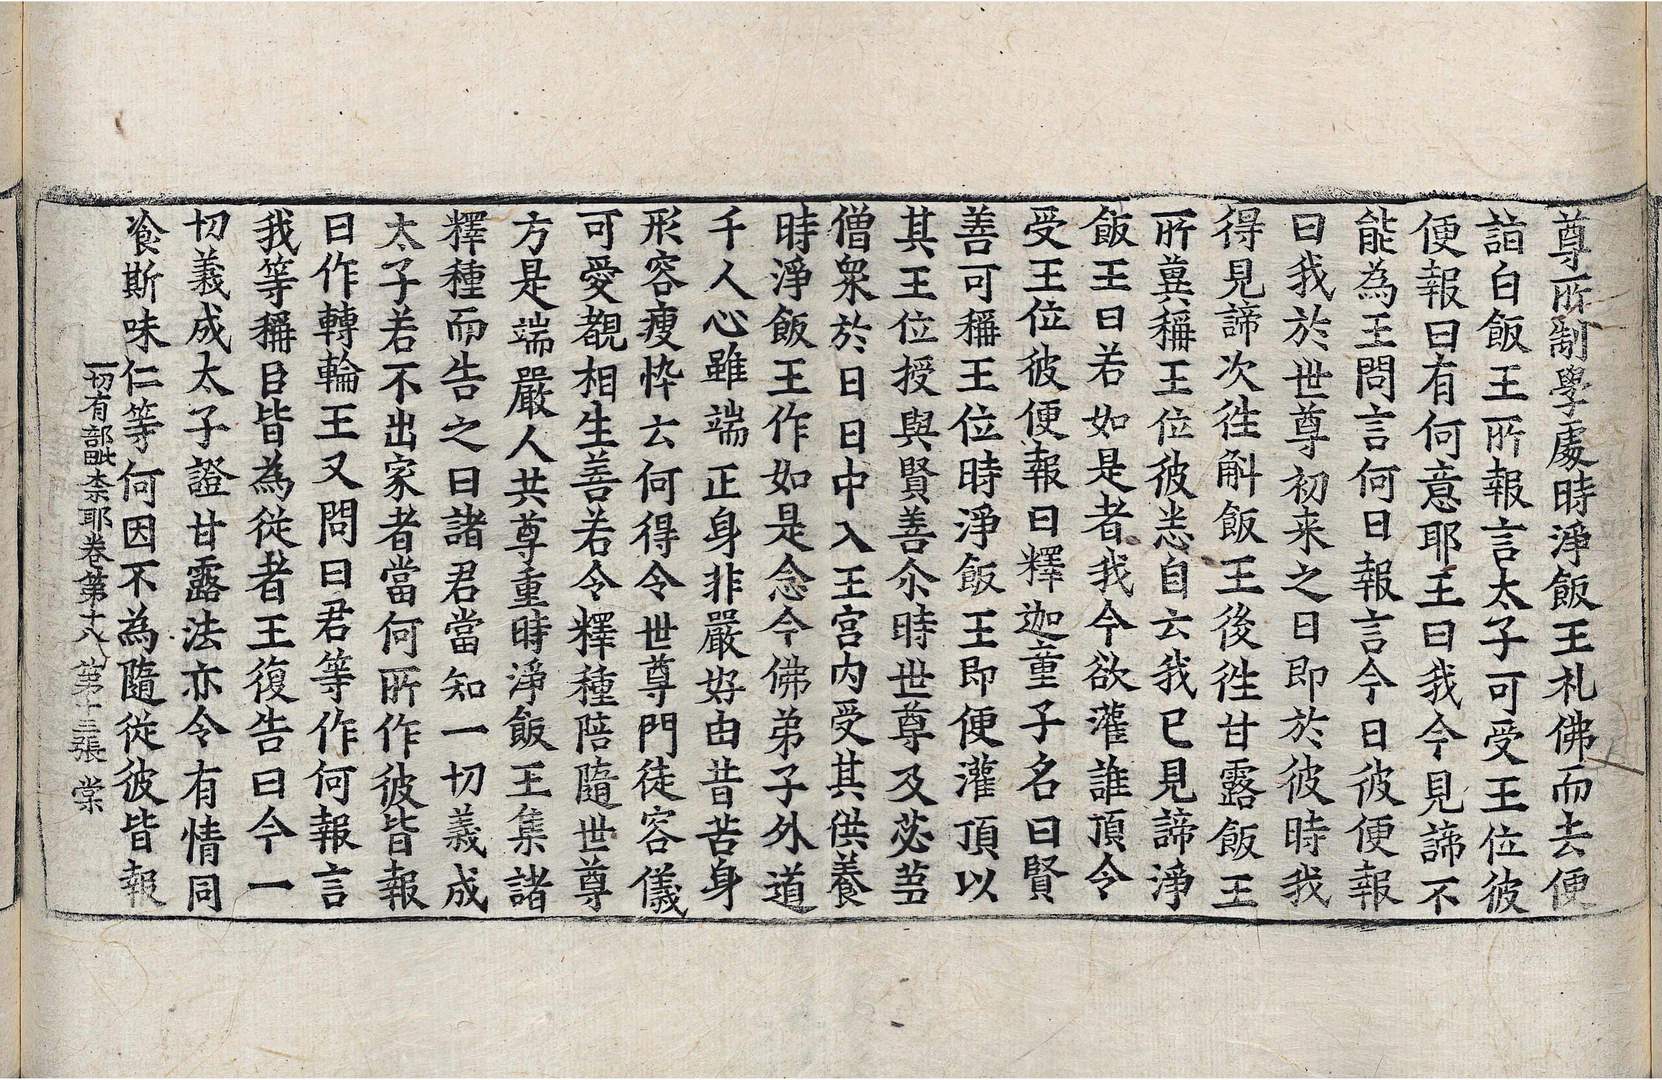 尊所制學處時淨飯王礼佛而去便
詣白飯王所報言太子可受王位彼
便報曰有何意耶王曰我今見諦不
能為王問言何日報言今日彼便報
曰我於世尊初来之日即於彼時我
得見諦次徃斛飯王後徃甘露飯王
所冀稱王位彼恙自云我已見諦淨
飯王曰若如是者我今欲灌誰頂令
受王位彼便報曰釋迦童子名曰賢
善可稱王位時淨飯王即便灌頂以
其王位授與賢善尒時世尊及苾芻
僧衆於日日中入王宮内受其供養
時淨飯王作如是念今佛弟子外道
千人心雖端正身非嚴好由昔苦身
形容瘦悴云何得令世尊門徒容儀
可愛觀相生善若令釋種陪隨世尊
方是端嚴人共尊重時淨飯王集諸
釋種而告之曰諸君當知一切義成
太子若不出家者當何所作彼皆報
曰作轉輪王又問曰君等作何報言
我等稱臣皆為従者王復告曰今一
切義成太子證甘露法亦令有情同
飡斯味仁等何因不為隨従彼皆報
一切有部毗柰耶卷第十八 第十三張 棠